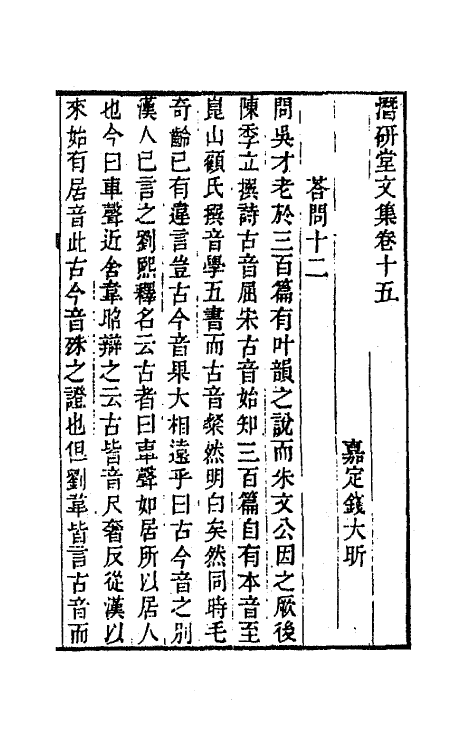 潛研堂文集卷十五
嘉定錢大昕
荅問十二
問吳才老於三百篇有叶韻之說而朱文公因之厥後
陳季立撰詩古音屈宋古音始知三百篇自有本音至
崑山顧氏撰音學五書而古音粲然明白矣然同時毛
奇齡已有違言豈古今音果大相遠乎曰古今音之別
漢人已言之劉熙釋名云古者曰車聲如居所以居人
也今曰車聲近舍韋昭辯之云古皆音尺奢反從漢以
來始有居音此古今音殊之證也但劉韋皆言古音而